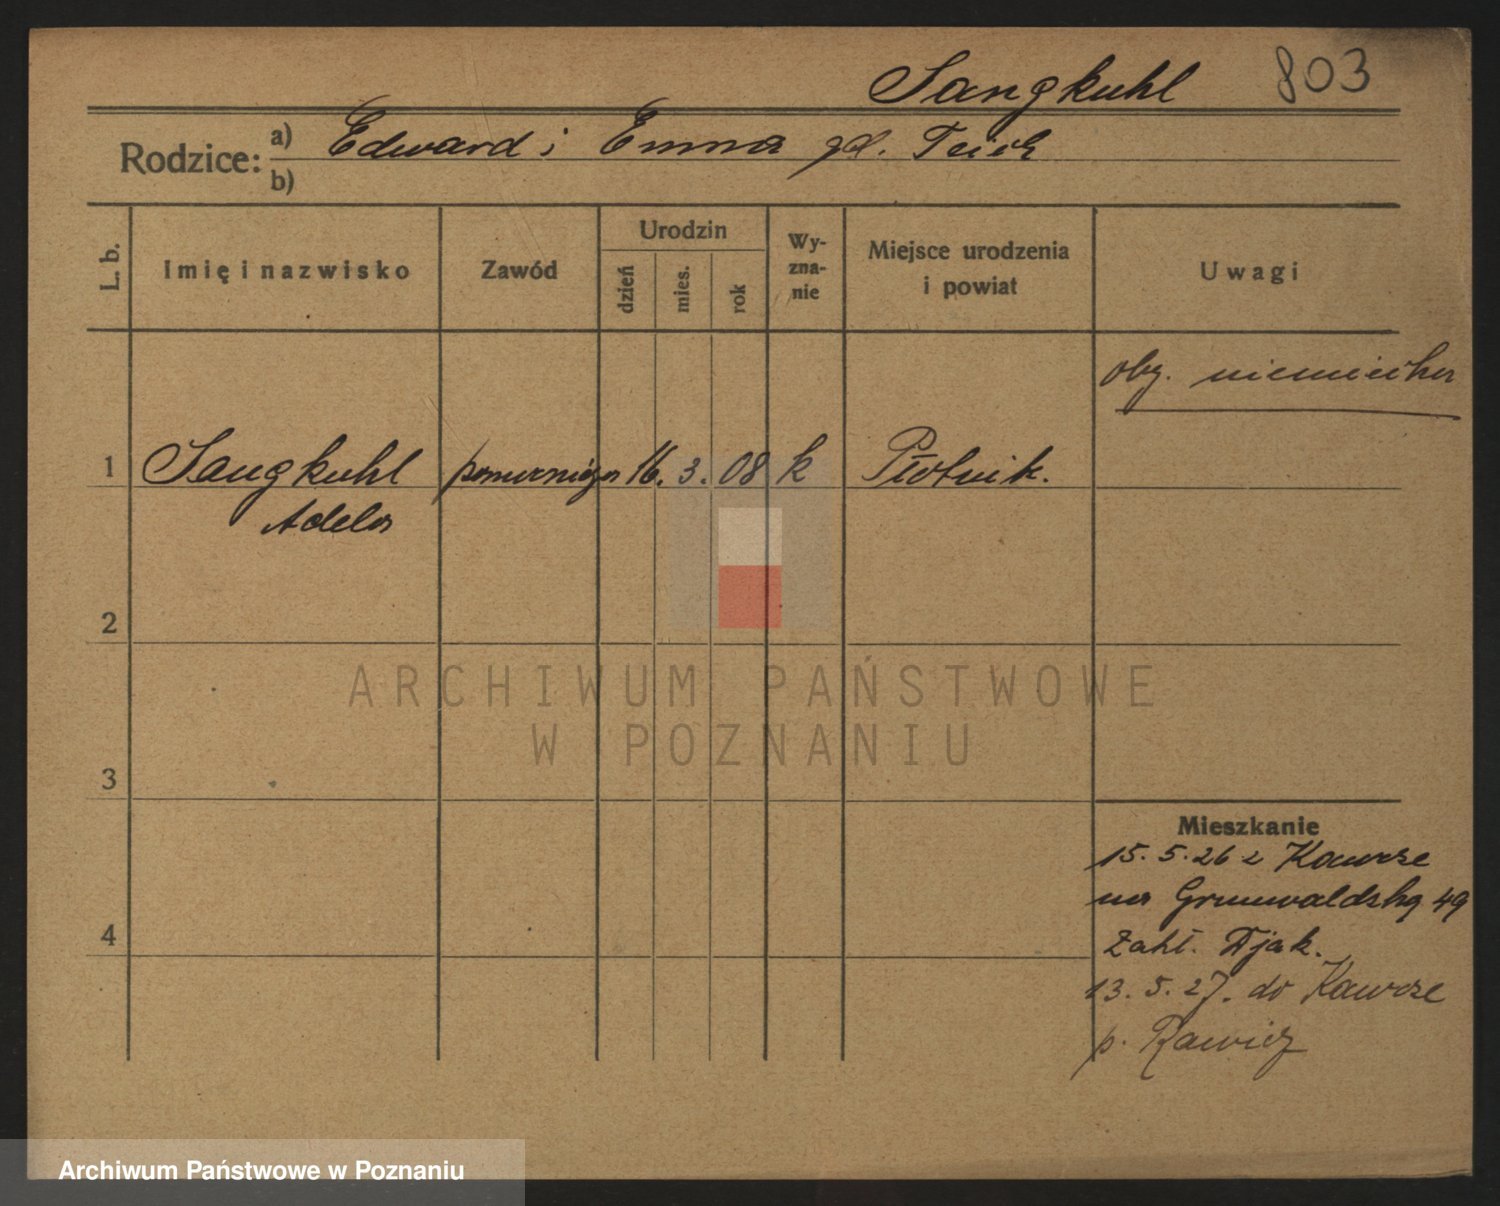 Sangkuhl 803
Rodzice: a) Edward i Emma zd. Teich
b)
L. b.
Imię i nazwisko
Zawód
Urodzin
dzień
mies.
rok
Wy-
zna-
nie
Miejsce urodzenia
i powiat
Uwagi
obyw. niemiecka
1 Sangkuhl 16. 3. 08 k
Adela
2
3
4
ARCHIWUM PAŃSTWOWE
W POZNANIU
Mieszkanie
15. 5. 26 z Kawcze
na Grunwaldzką 49
13. 5. 27. do Kawcze
p. Rawicz
Archiwum Państwowe w Poznaniu